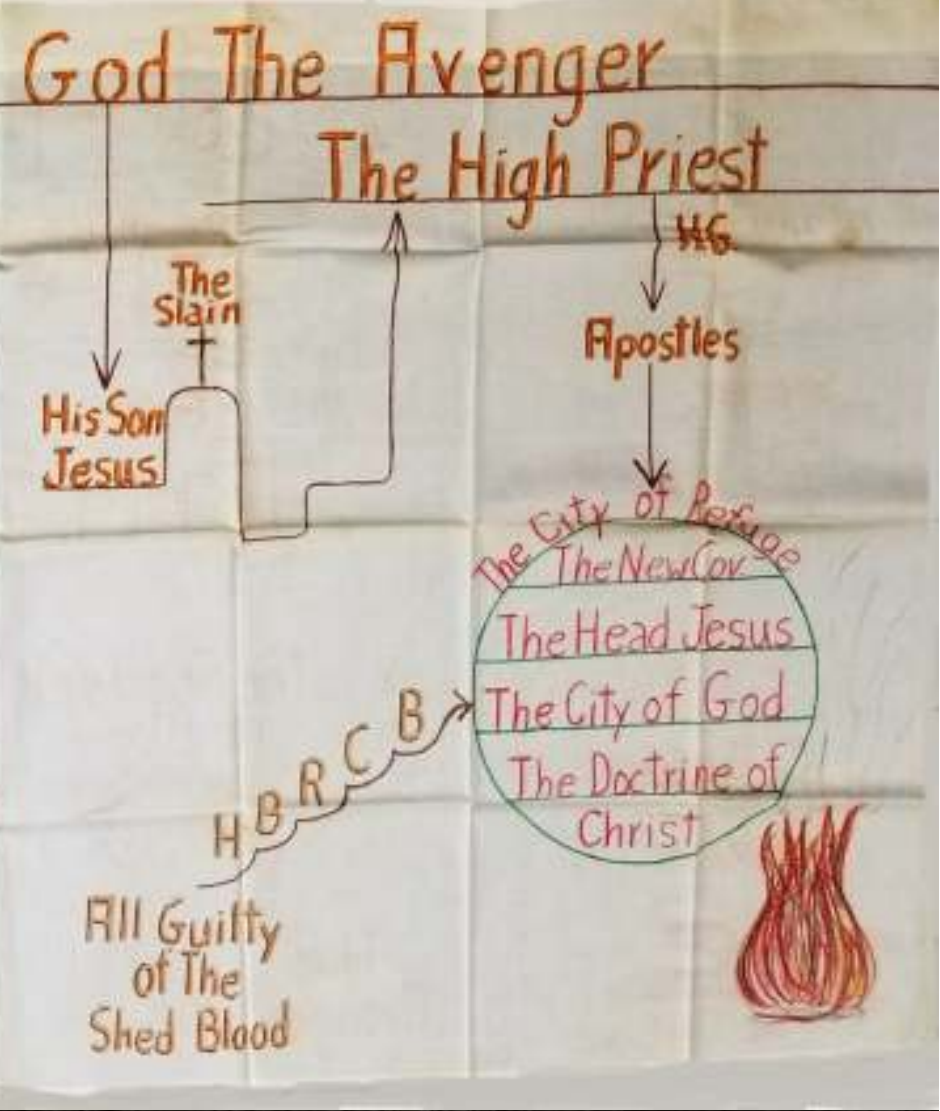 God The Avenger
The High Priest
HG.
The
Slain
Apostles
His Son
Jesus
The City of Refuge
The New Cov
The Head Jesus
The City of God
The Doctrine of
Christ
H B R C B
All Guilty
of The
Shed Blood